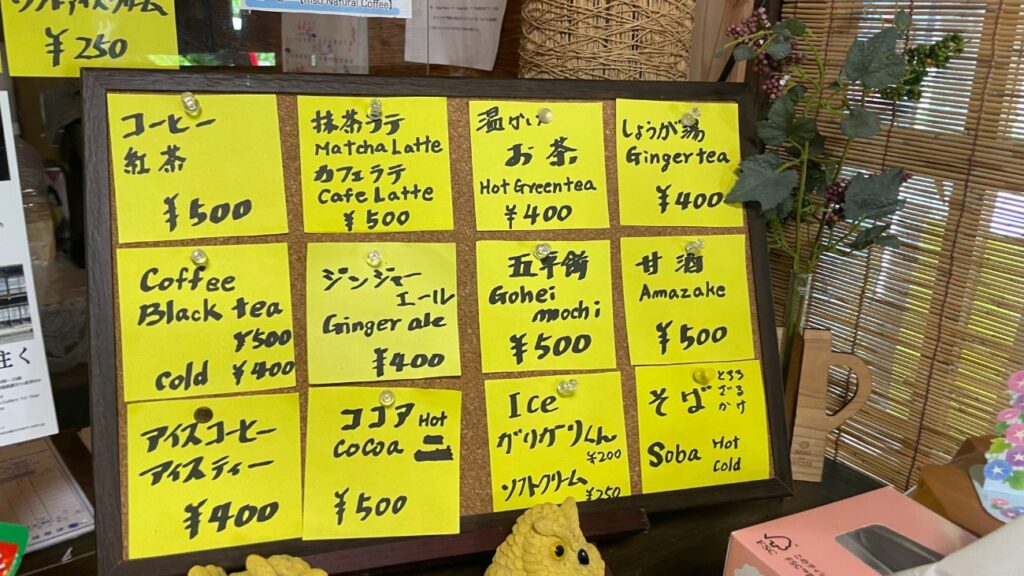 ソフトアイスクリーム
¥250
【Kiso Natural Coffee】
コーヒー
紅茶
¥500
抹茶ラテ
Matcha Latte
カフェラテ
Cafe Latte
¥500
温かい
お茶
Hot Green tea
¥400
しょうが湯
Ginger tea
¥400
Coffee
Black tea
¥500
cold ¥400
ジンジャー
エール
Ginger ale
¥400
五平餅
Gohei
mochi
¥500
甘酒
Amazake
¥500
アイスコーヒー
アイスティー
¥400
ココア Hot
cocoa
¥500
Ice
ガリガリくん
¥200
ソフトクリーム
¥250
そば
とろろ
ざる
かけ
Soba Hot
Cold
FSC